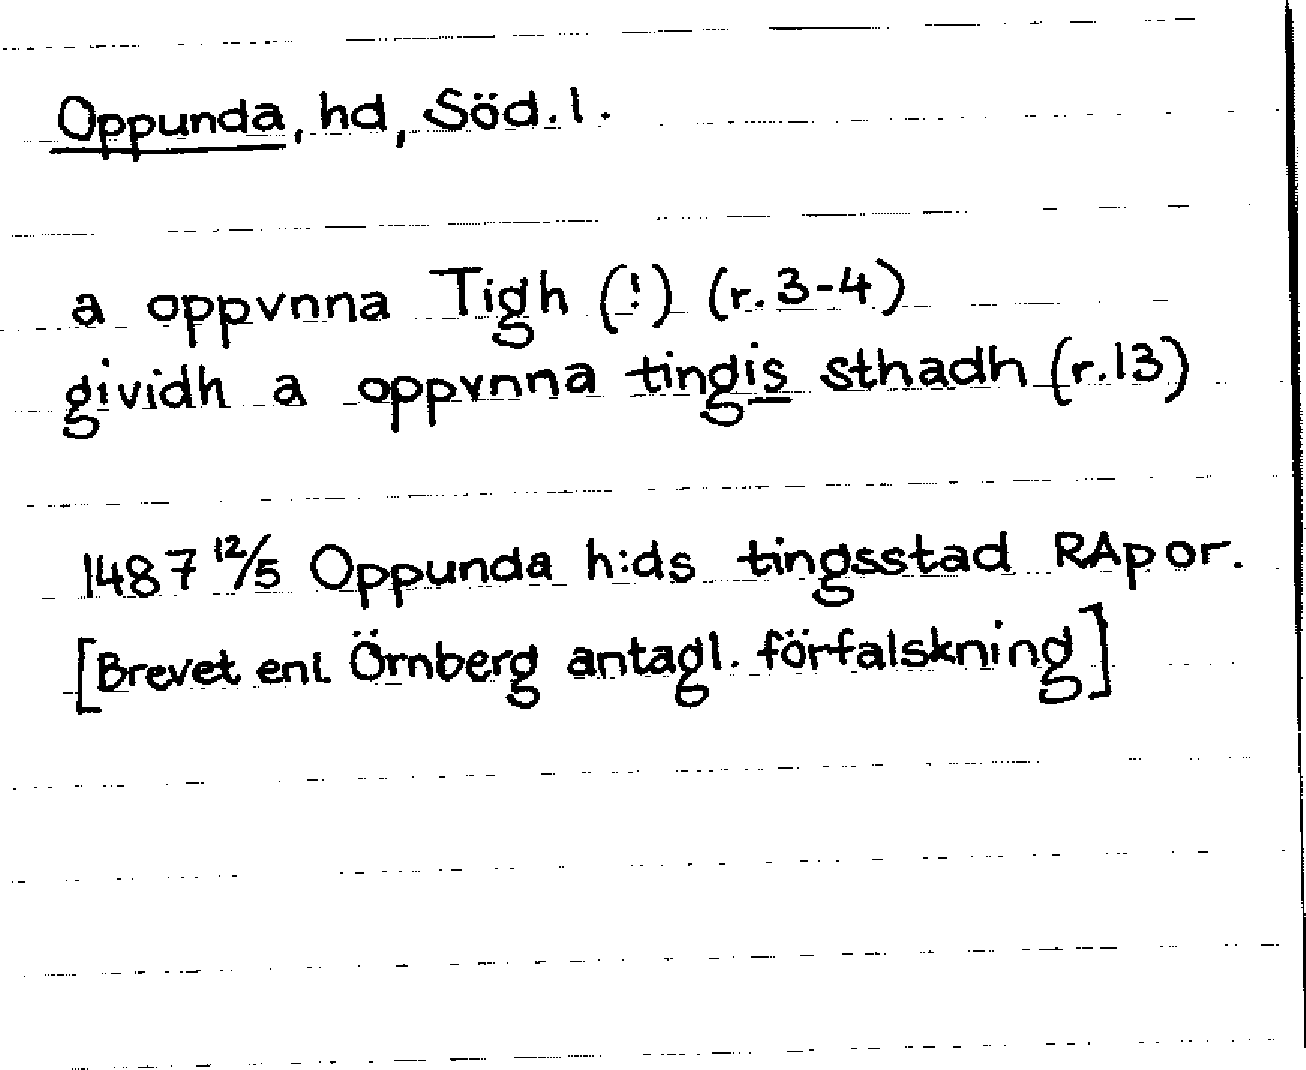 Oppunda, hd, Söd. l.
a oppvnna Tigh (!) (r. 3-4)
gividh a oppvnna tingis sthadh (r. 13)
1487 12/5 Oppunda h:ds tingsstad RAp or.
[Brevet enl. Örnberg antagl. förfalskning]